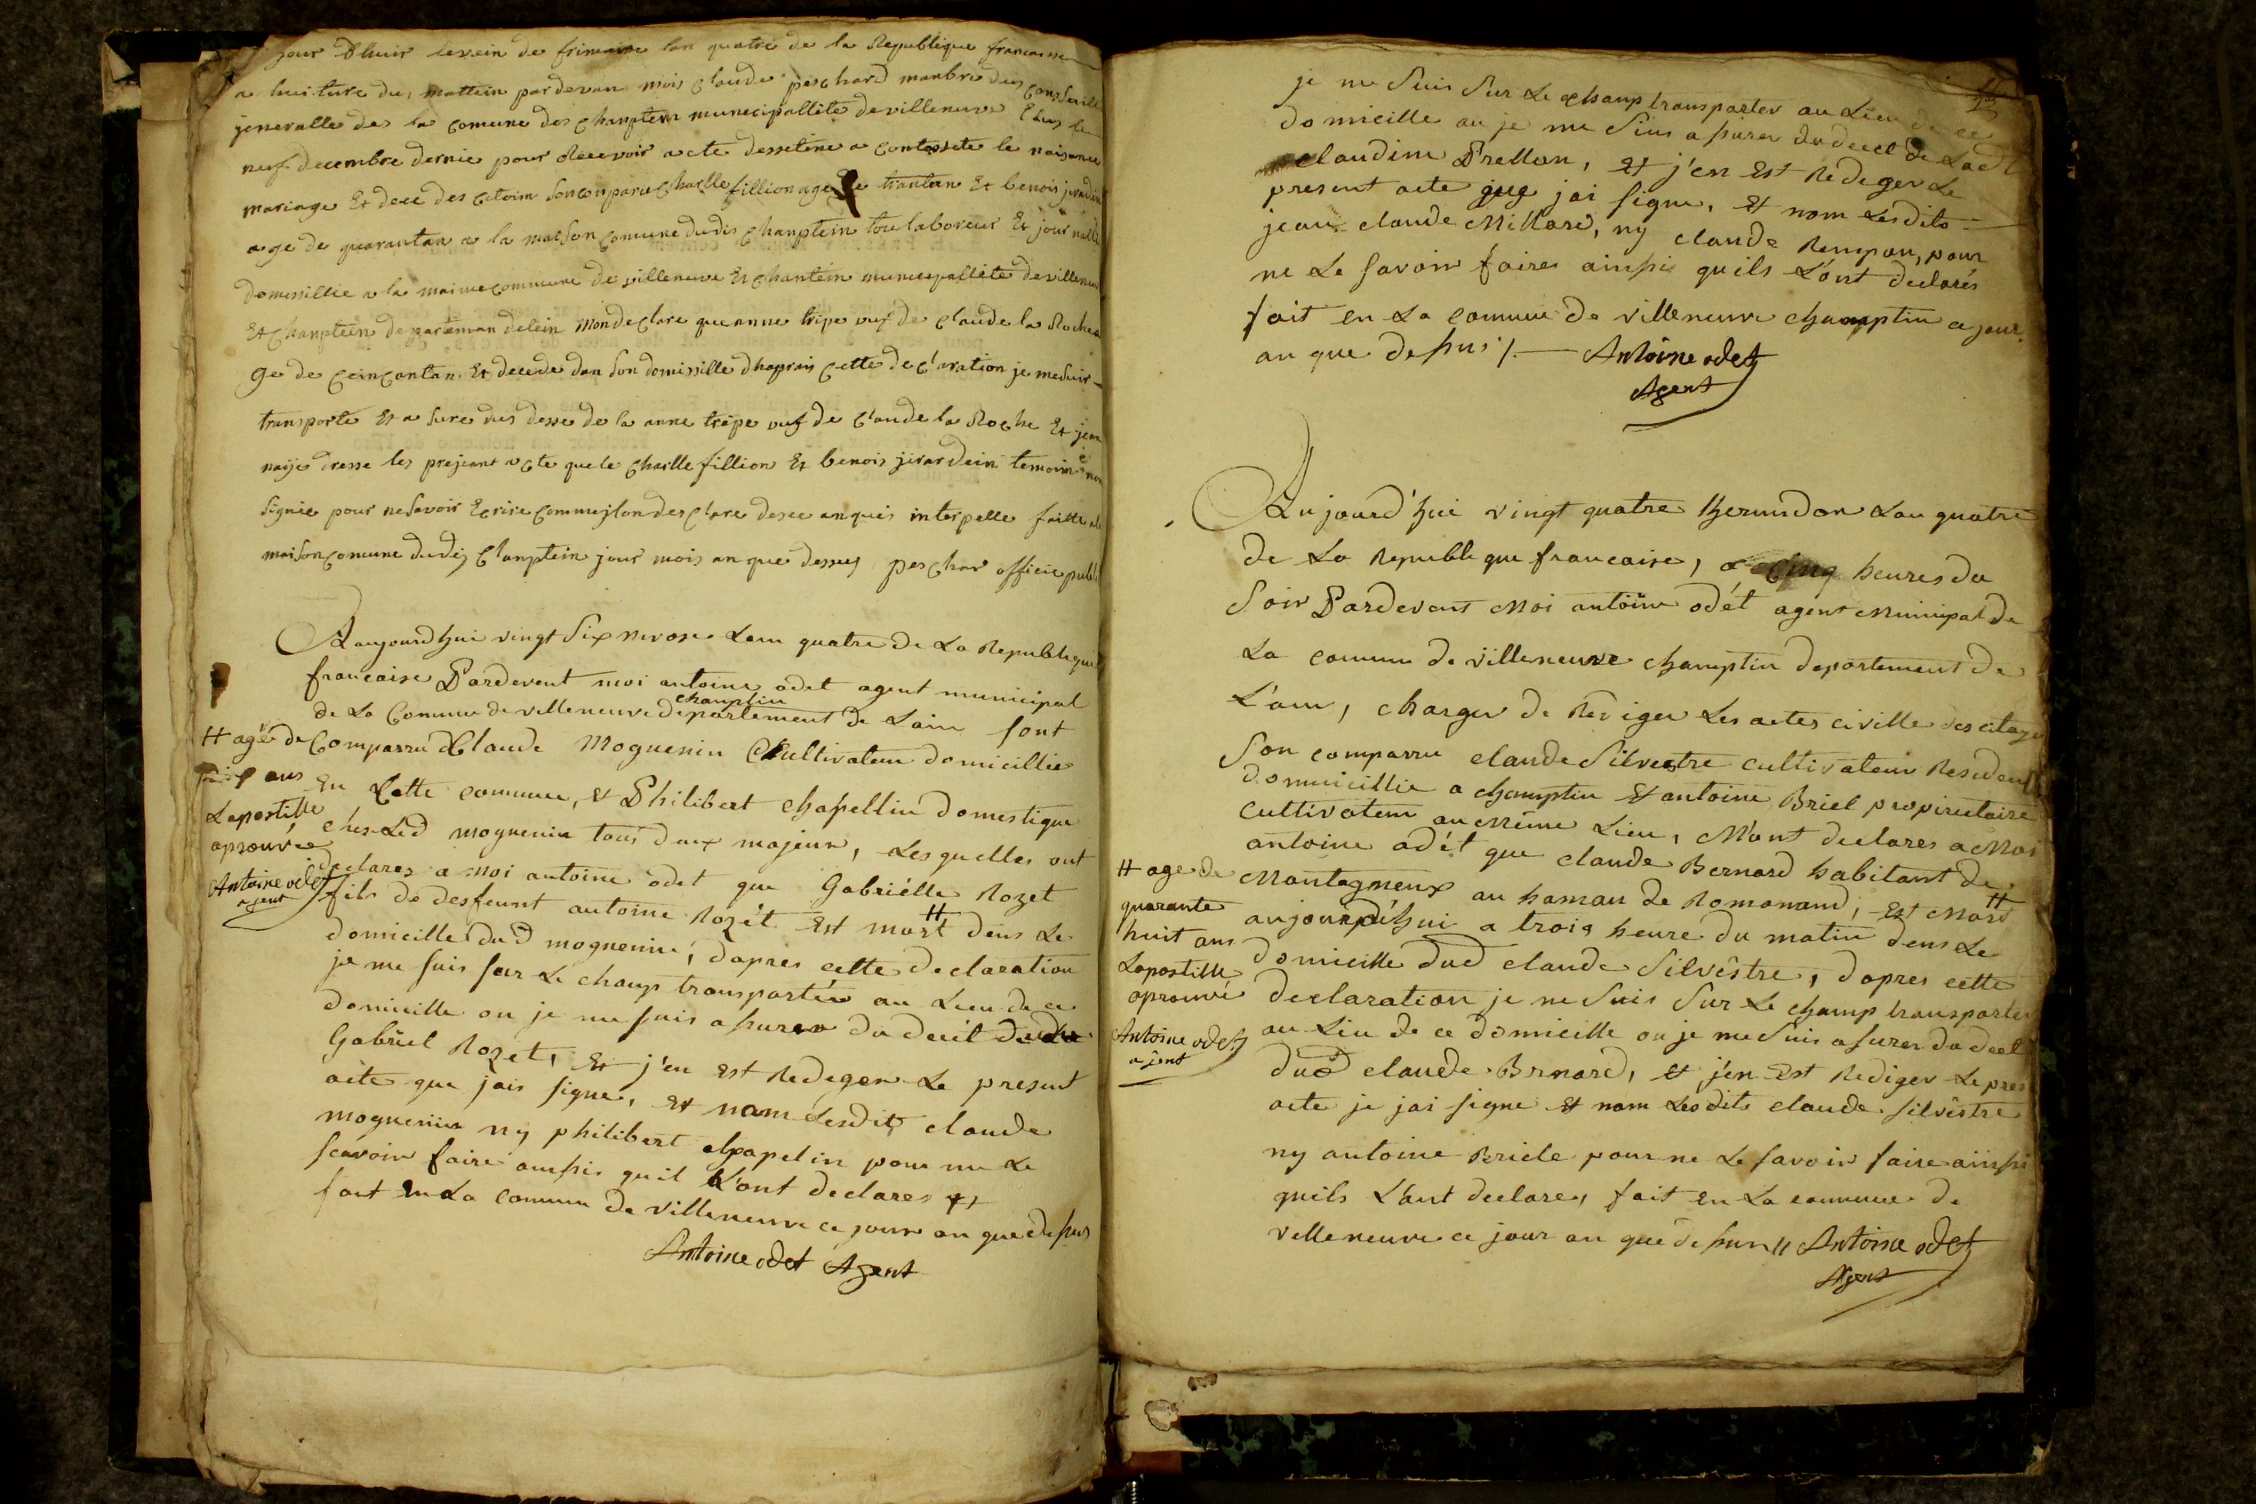 jour d'huir levein de frimaire lan quatre de la Republique francaisse
a huiture du mattein pardevan mois Claude peschard manbre du Consseille
jeneralle des la Comune des Chanptein municipallite devilleneuve Elus le
neuf decembre dernie pour Recevoir acte dessetine a Contestete le naisance
mariage Et dece des Citoien son conparu Charlle fillion age de trantan Et benois jirardin
age de quarantan a la maison Comune dudis Chanptein tou laboreur Et journallié
domissillie a la maime commune de villeneuve Et Chantein municepallite devilleneuve
Et Chanptein departeman delein Mon declare que anne tripe vuf de Claude la Roche a
ge de Ceincantan Et decede dan son domissille dhaprais Cette declaration je me suis
transporte Et a sure dus desse de la anne tripe vuf de Claude la Roche Et jean
naije dresse les prejeant acte que le Charlle fillion Et benois jirardein temoin é non
signie pour nesavoir Ecrire Commejlondesclare desce anquis interpelle faitte a la
maison Comune dudij Clanptein jour mois an que dessus peschar officie publi
Aaujourdhui vingt six nivose Lan quatre de La Republique
francaise Pardevent moi antoine odet agent municipal
de La Commune de villeneuve champtin departement de Lain sont
Comparru Claude Moguenin Cultivateur domicillié
En Cette commune, et Philibert chapellin domestique
chés Led moguenin tous deux majeur, Lesquelles ont
declarez a moi antoine odet que Gabriélle Rozet
fils de desfeunt antoine Rozét Est mort H dens Le
domicille dud moguenin, dapres cette declaration
je me suis sur Le champ transportér au Lieu de ce
domicille ou je me suis assurer du decét dudu
Gabriel Rozet, Et j'en Est Redegér Le present
acte que jais signe, et nom Lesdits claude
moguenin ny philibert chapelin pour ne Le
scavoir faire ainssis quil L'ont declares
fait En La commune de villeneuve ce jour an que dessus
Antoine odet Agent
H agé de
ans
Lapostille
aprouve
Antoine odet
agent
je me suis sur Le champ transporter au Lieu de ce
domicille ou je me suis assurer du decet de Lad
claudine Prellon, Et j'en Est Redeger Le
present acte que jai signe, et nom Lesdits
jean claude Millard, ny claude Rempon, pour
ne Le savoir faires ainssis quils L'ont declarés
fait en La commune de villeneuve champtin ce jour
an que dessus /. Antoine odet
Agent
Aujourd'hui vingt quatre thermidor Lan quatre
de La Republique francaise, a Cinq heures du
soir Pardevent Moi antoine odét agent Municipal de
La commune de villeneuve champtin departement de
L'ain, charger de Rediger Les actes civille des citoyen
son comparru claude Silvestre cultivateur Resident
domicillie a champtin Et antoine Briel propiretaire
cultivateur au Même Lieu, M'ont declares a Moi
antoine odét que claude Bernard habitant de
Montagneux au hamau de Romanand, Est Mort H
aujourd'hui a trois heure du matin dens Le
domicille dud claude Silvéstre, dapres cette
declaration je me suis sur Le champ transporter
au Lieu de ce domicille ou je me suis assurer du decet
dud claude Brnard, et j'en Est Rediger Le pres
acte je jai signe et nom Lesdits claude silvéstre
ny antoine Briele pour ne Le savoir faire ainssi
quils L'ont declare, fait En La commune de
villeneuve ce jour an que dessus // Antoine odet
Agent
H age de
quarante
huit ans
Lapostille
aprouvé
Antoine odet
ajent